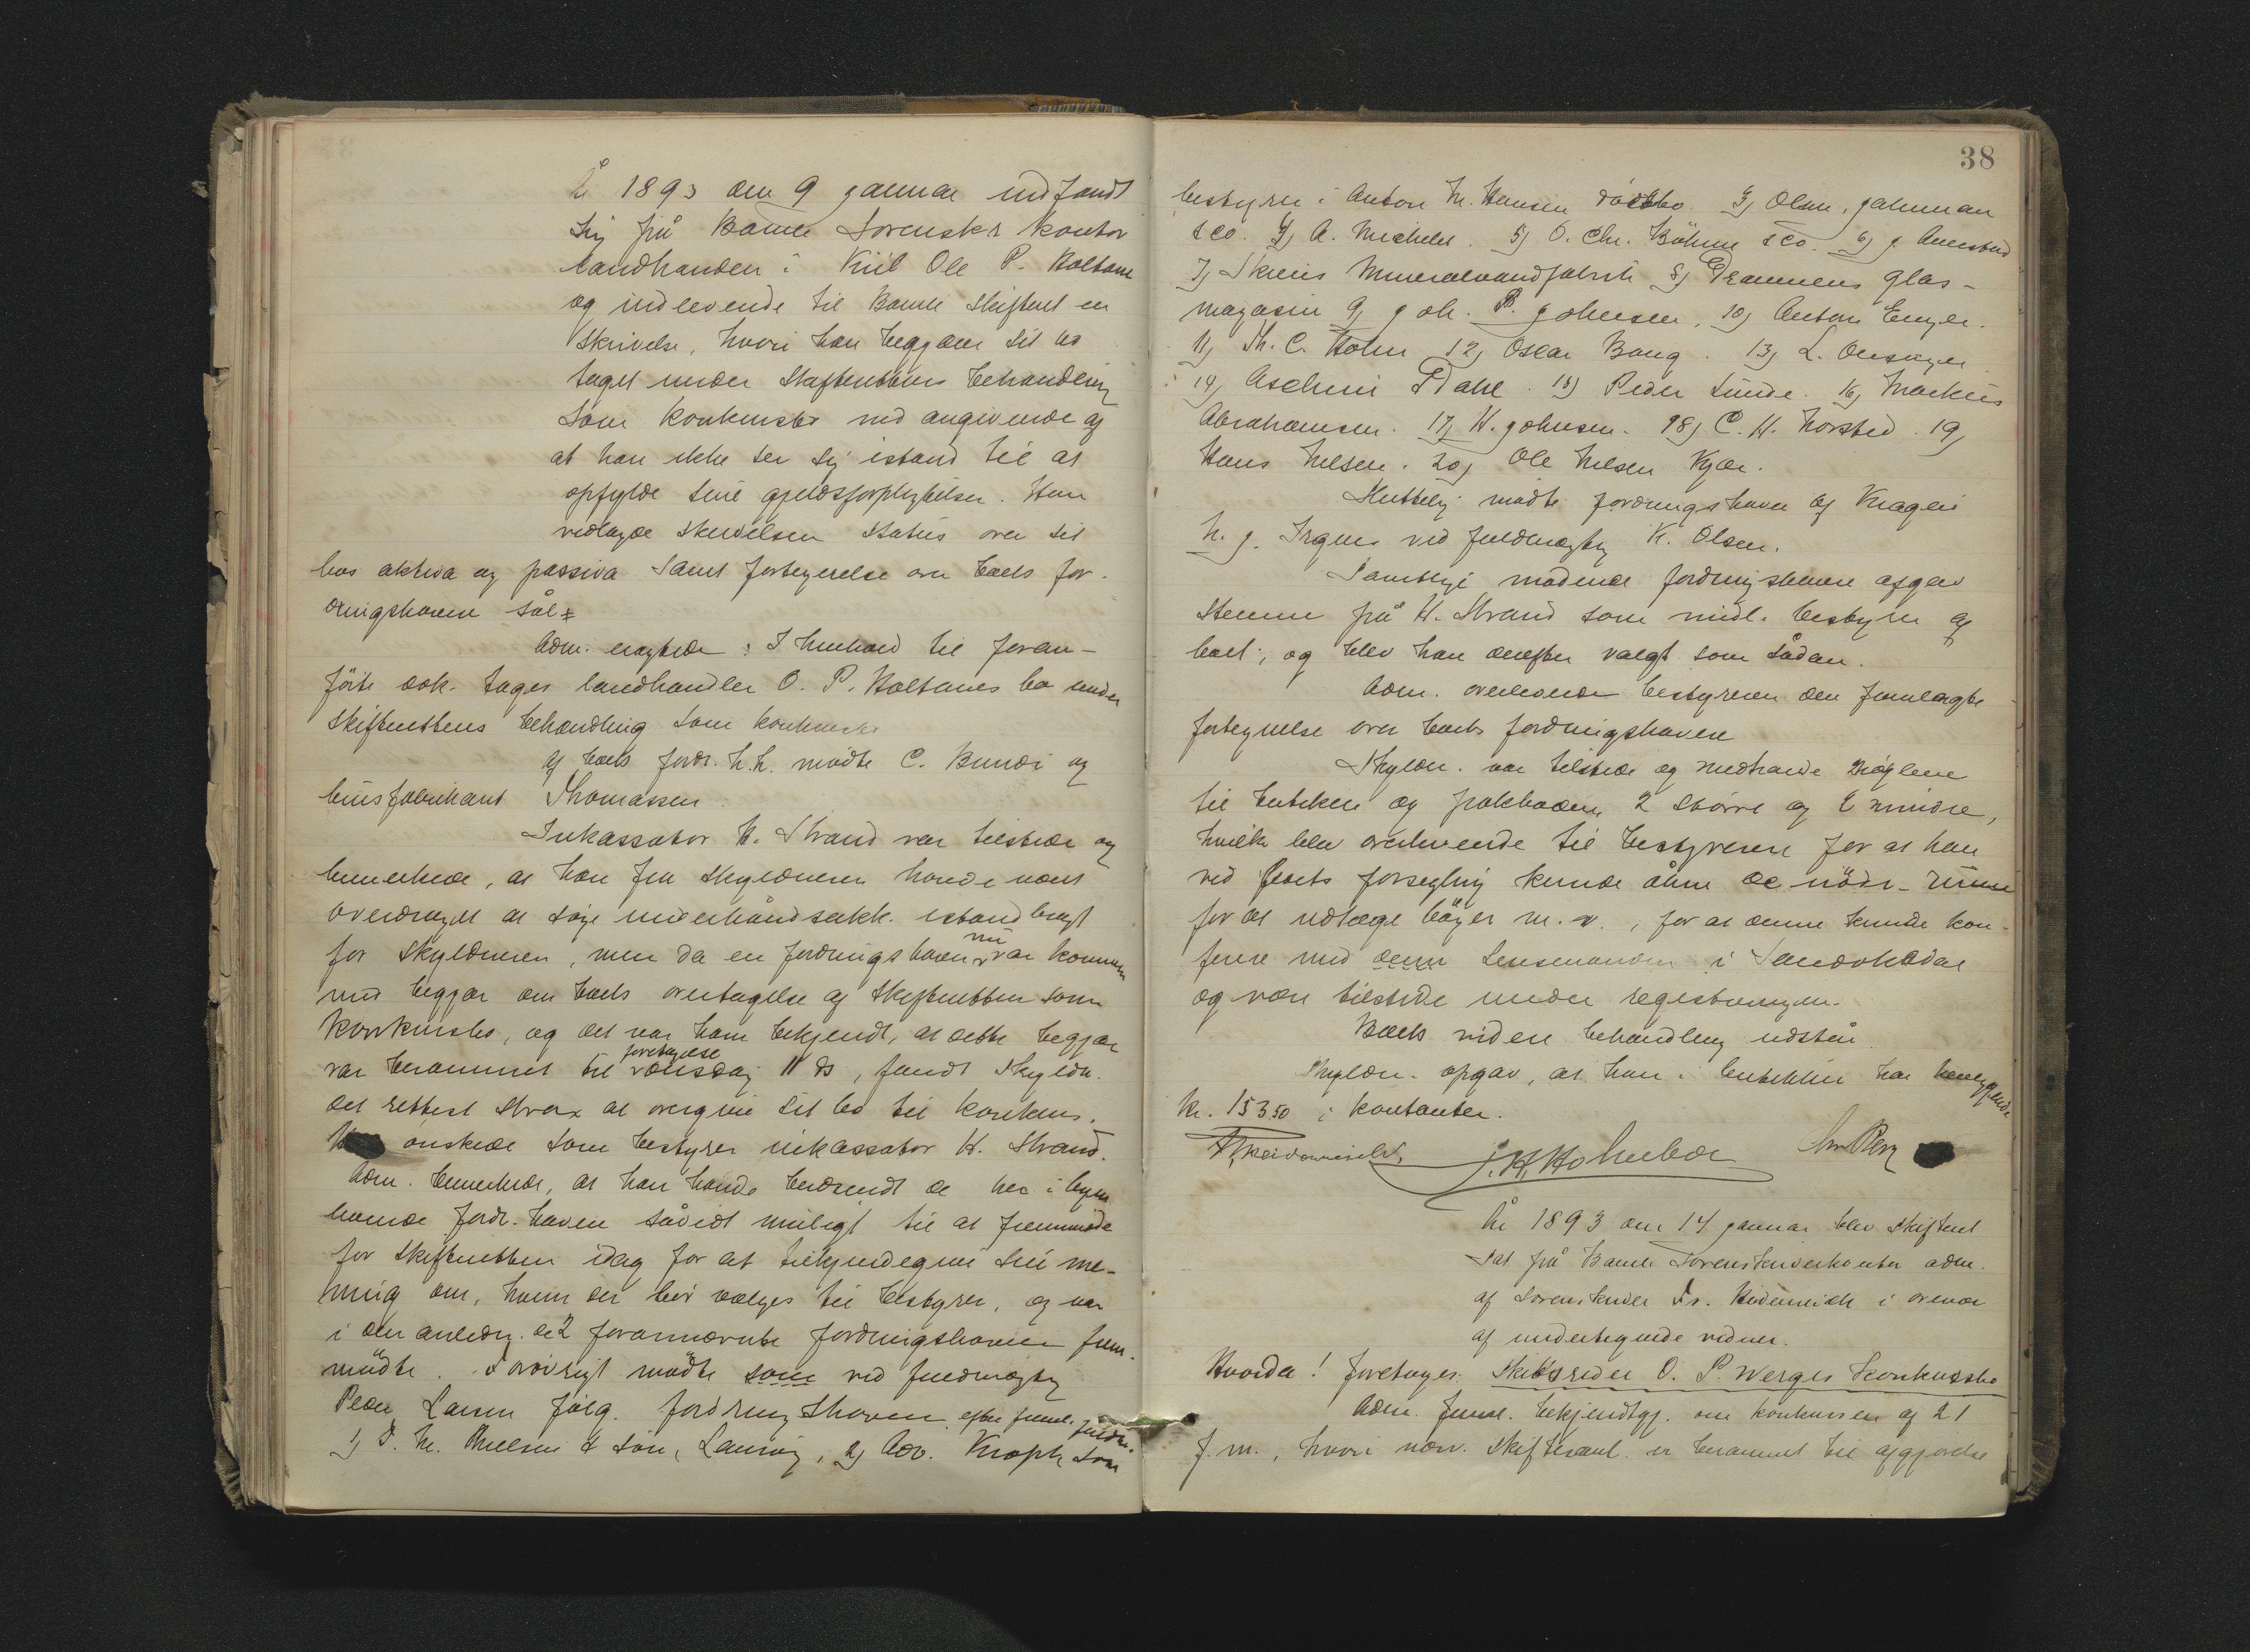 År 1893 den 9 januar indfandt
sig på Bamle Sorenskr kontor
landhandler i Kiil Ole P. Holtane
og indleverede til Bamle skifteret en
skrivelse, hvori han begjærer sit bo
taget under skifterettens behandling
som konkursbo ved angivende af
at han ikke ser sig istand til at
opfylde sine gjeldsforpligtelser. Han
vedlagde skrivelsen status over sit
bos aktiva og passiva samt fortegnelse over boets for-
dringshavere sål
Adm. eragtede: I henhold til foran-
førte dok. tages landhandler O. P. Holtanes bo under
skifterettens behandling som konkursbo
Af boets fordr. h.h. mødte C. Bundi og
Thomassen
Inkassator H. Strand var tilstede og
bemerkede, at han fra skyldneren havde været
overdraget at søge underhåndsakk. istandbragt
for skyldneren, men da en fordringshaver nu var kommen
med begjær om boets overtagelse af skifteretten som
konkursbo, og det var ham bekjendt, at dette begjær
var berammet til foretagelse onsdag 11 ds, fandt skyldn.
det rettest strax at overgive sit bo til konkurs.
ønskede som bestyrer inkassator H. Strand.
Adm. bemerkede, at han havde beordret de her i byen
boende fordr. havere såvidt muligt til at fremmøde
for skifteretten idag for at tilkjendegive sin me-
ning om, hvem der bør vælges til bestyrer, og var
i den anledn. de 2 forannævnte fordringshavere frem-
mødte. Forøvrigt mødte som ved fuldmægtig
Peder Larsen følg. fordringshavere efter freml. fuldm.
1) P. M. Nielsen & søn, Laurvig, 2) Adv. Kroph som
38
bestyrer i Anton M. Hansen dødsbo. 3) Olsen, Jahnman
& co. 4) A. Michelet. 5) O. Chr. Bøhme & co. 6)
7) Skiens Mineralvandfabrik 8) Drammens Glas-
magasin 9) Joh. B. Johnsen, 10) Anton Enger.
11) Th. C. Holm 12) Oscar Bang. 13) L.
14) Aschim Dahl. 15) Peder Sunde. 16) Markus
Abrahamsen. 17) H. Johnsen. 18) C. H. Norsted. 19)
Hans Nilsen. 20) Ole Nilsen Kjær.
Sluttelig mødte fordringshaver af Kragerø
N. J. Irgens ved fuldmægtig K. Olsen.
Samtlige mødende fordringshavere afgav
stemme på H. Strand som midl. bestyrer af
boet, og blev han derefter valgt som sådan.
Adm. overleverede bestyreren den fremlagte
fortegnelse over boets fordringshavere
Skyldn. var tilstede og medhavde nøglene
til butiken og pakboden, 2 større og 2 mindre,
hvilke blev overleverede til bestyreren for at han
ved boets forsegling kunde åbne de nødv. rum
for at udtage bøger m. v., for at denne kunde kon-
ferere med denn lensmanden i Sandøkedal
og være tilstede under registreringen.
Boets videre behandling udstår.
Skyldn. opgav, at han i butikken har henliggende
Kr. 153.50 i kontanter.
J. H. Holmboe
År 1893 den 14 januar blev skifteret
sat på Bamle Sorenskriverkontor adm.
af sorenskriver Fr. Heidenreich i overvær
af undertegnede vidner.
Hvorda! foretages: Skibsreder O. P. Werges konkursbo
Adm. freml. bekjendtgj. om konkursen af 21
f. m., hvori nærv. skiftesaml. er berammet til afgjørelse